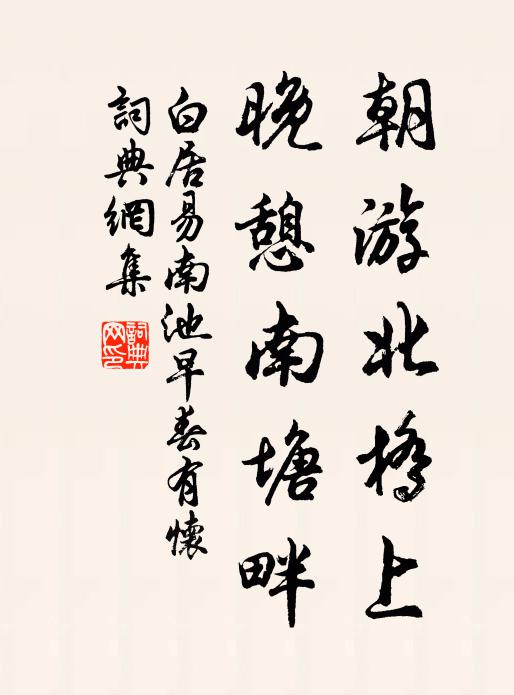 朝游北橋上
晚憩南塘畔
白居易南池早春有懷
詞典網集
詞典網印